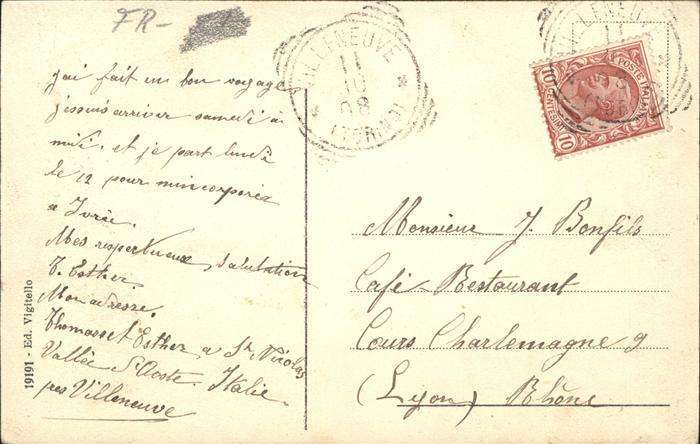 FR-
j'ai fait un bon voyage
je suis arriver samedi à
midi et je part lundi
le 12 pour m'incorporéa
a Ivrée.
Mes respectueux salutation
T. Esther.
Mon adresse.
Thomasset Esther a St Nicolas
Vallée d'Aoste. Italie
pres Villeneuve
19191 - Ed. Vigitello
VILLENEUVE
11
10
08
(TORINO)
VILLENEUVE
11
POSTE ITALIANE
10 CENTESIMI 10
Monsieur J. Bonfils
Café Restaurant
Cours Charlemagne 9
(Lyon) Rhône